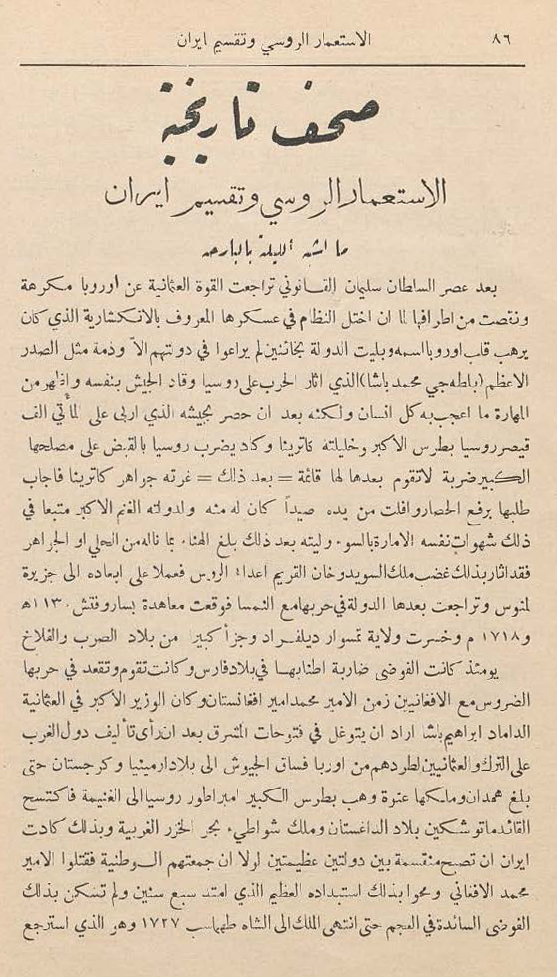 ٨٦
الاستعمار الروسي وتقسيم ايران
صحف تاريخية
الاستعمار الروسي وتقسيم ايران
ما اشبه الليلة بالبارحه
بعد عصر السلطان سليمان القانوني تراجعت القوة العثمانية عن اوروبا مكرهة
ونقصت من اطرافها لما ان اختل النظام في عسكرها المعروف بالانكشارية الذي كان
يرهب قلب اوروبا اسمه وبليت الدولة بخائنين لم يراعوا في دولتهم الاّ وذمة مثل الصدر
الاعظم (باطه جي محمد باشا) الذي اثار الحرب على روسيا وقاد الجيش بنفسه واظهر من
المهارة ما اعجب به كل انسان ولكنه بعد ان حصر بجيشه الذي اربى على المأتي الف
قيصر روسيا بطرس الاكبر وخليلته كاترينا وكاد يضرب روسيا بالقبض على مصلحها
الكبير ضربة لا تقوم بعدها لها قائمة = بعد ذلك = غرته جواهر كاترينا فاجاب
طلبها برفع الحصار وافلت من يده صيداً كان له منه ولدولته الغنم الاكبر متبعا في
ذلك شهوات نفسه الامارة بالسوء وليته بعد ذلك بلغ الهناء بما ناله من الحلي او الجواهر
فقد اثار بذلك غضب ملك السويد وخان القريم اعداء الروس فعملا على ابعاده الى جزيرة
لمنوس وتراجعت بعدها الدولة في حربها مع النمسا فوقعت معاهدة بساروفتش ١١٣٠ ه
و ١٧١٨ م وخسرت ولاية تمسوار وبلغراد وجزأ كبير من بلاد الصرب والفلاخ
يومئذ كانت الفوضى ضاربة اطنابها في بلاد فارس وكانت تقوم وتقعد في حربها
الضروس مع الافغانيين زمن الامير محمد امير افغانستان وكان الوزير الاكبر في العثمانية
الداماد ابراهيم باشا اراد ان يتوغل في فتوحات المشرق بعد ان رأى تأليف دول الغرب
على الترك والعثمانيين لطردهم من اوربا فساق الجيوش الى بلاد ارمينيا وكرجستان حتى
بلغ همدان وملكها عنوة وهب بطرس الكبير امبراطور روسيا الى الغنيمة فاكتسح
القائد ماتوشكين بلاد الداغستان وملك شواطيء بحر الخزر الغربية وبذلك كادت
ايران ان تصبح منقسمة بين دولتين عظيمتين لولا ان جمعتهم الوطنية فقتلوا الامير
محمد الافغاني ومحوا بذلك استبداده العظيم الذي امتد سبع سنين ولم تسكن بذلك
الفوضى السائدة في العجم حتى انتهى الملك الى الشاه طهماسب ١٧٢٧ وهو الذي استرجع